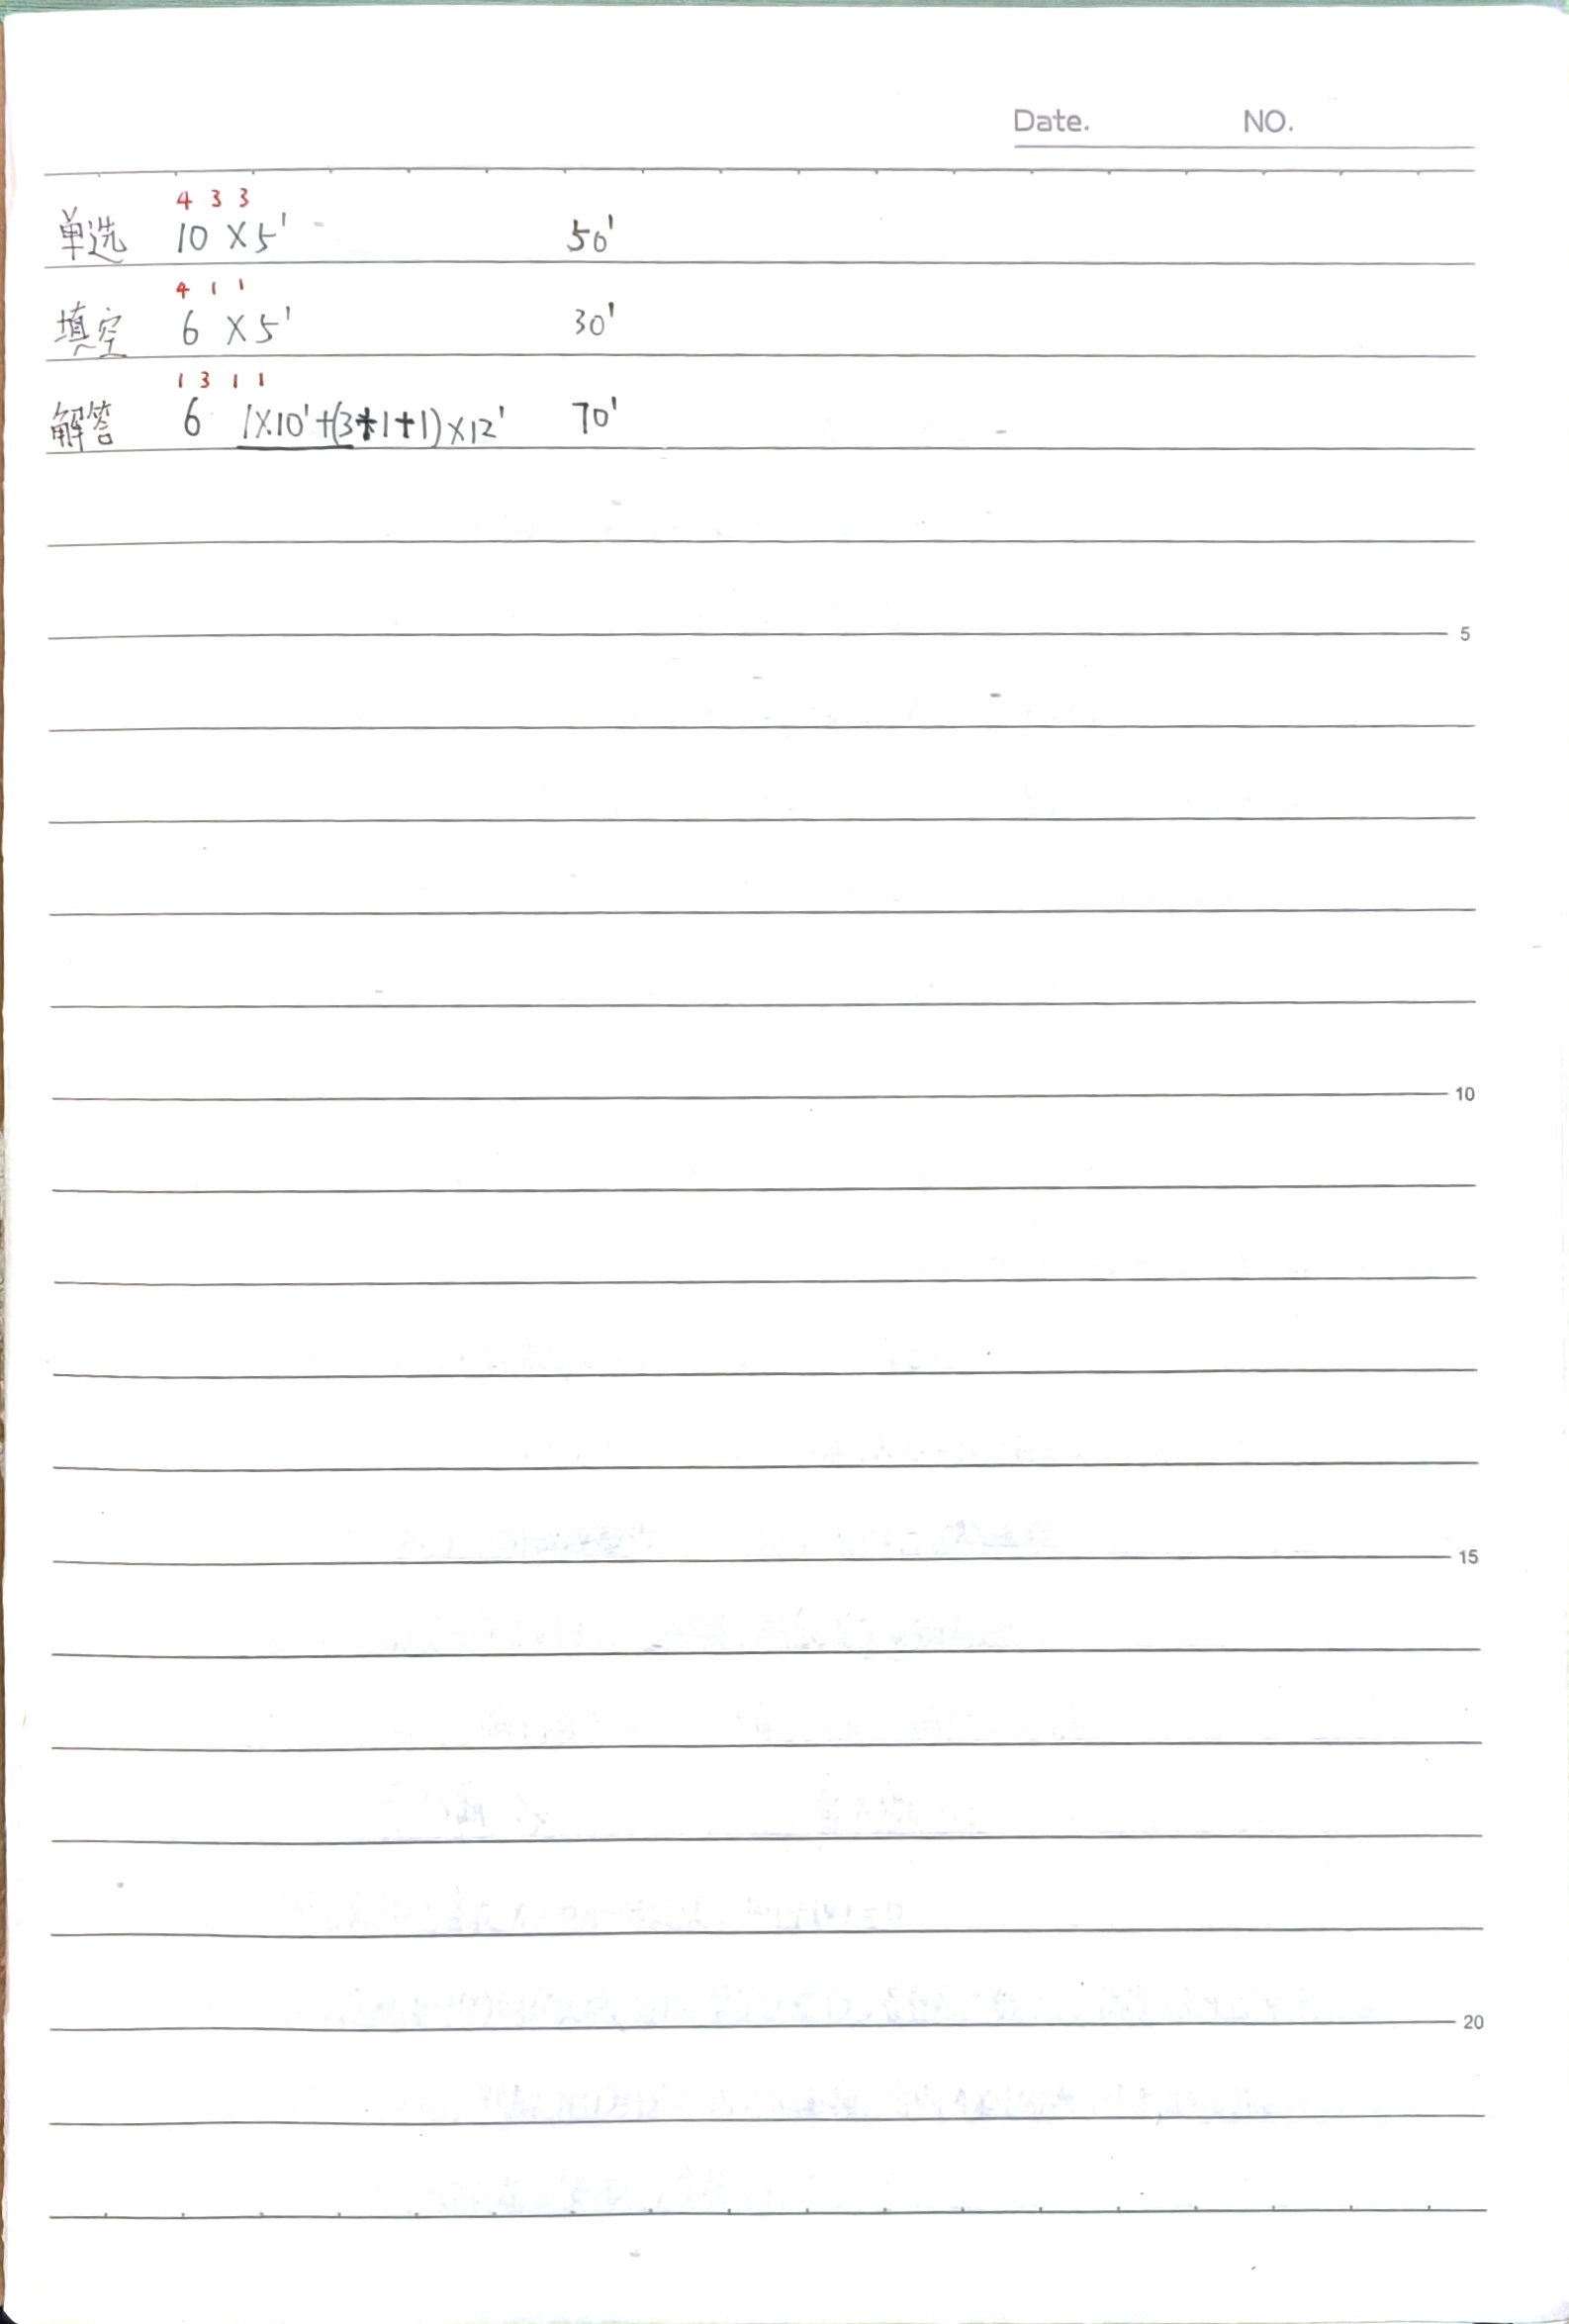 Date. NO.
4 3 3
单选 10 ×5' 50'
4 1 1
填空 6 ×5' 30'
1 3 1 1
解答 6 1×10'+(3+1+1)×12' 70'
5
10
15
20